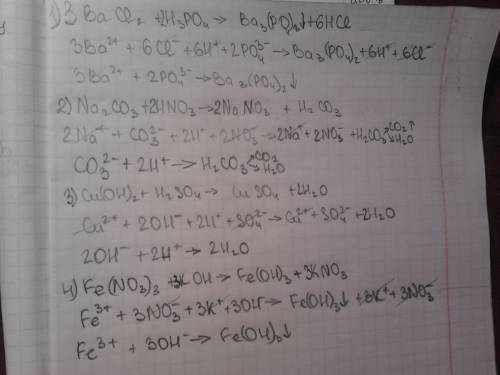 1) 3BaCl₂ + 2H₃PO₄ → Ba₃(PO₄)₂↓ + 6HCl
3Ba²⁺ + 6Cl⁻ + 6H⁺ + 2PO₄³⁻ → Ba₃(PO₄)₂ + 6H⁺ + 6Cl⁻
3Ba²⁺ + 2PO₄³⁻ → Ba₃(PO₄)₂↓
2) Na₂CO₃ + 2HNO₃ → 2NaNO₃ + H₂CO₃
2Na⁺ + CO₃²⁻ + 2H⁺ + 2NO₃⁻ → 2Na⁺ + 2NO₃⁻ + H₂CO₃ ↗CO₂↑ ↘H₂O
CO₃²⁻ + 2H⁺ → H₂CO₃ ↗CO₂ ↘H₂O
3) Cu(OH)₂ + H₂SO₄ → CuSO₄ + 2H₂O
Cu²⁺ + 2OH⁻ + 2H⁺ + SO₄²⁻ → Cu²⁺ + SO₄²⁻ + 2H₂O
2OH⁻ + 2H⁺ → 2H₂O
4) Fe(NO₃)₃ + 3KOH → Fe(OH)₃ + 3KNO₃
Fe³⁺ + 3NO₃⁻ + 3K⁺ + 3OH⁻ → Fe(OH)₃↓ + 3K⁺ + 3NO₃⁻
Fe³⁺ + 3OH⁻ → Fe(OH)₃↓